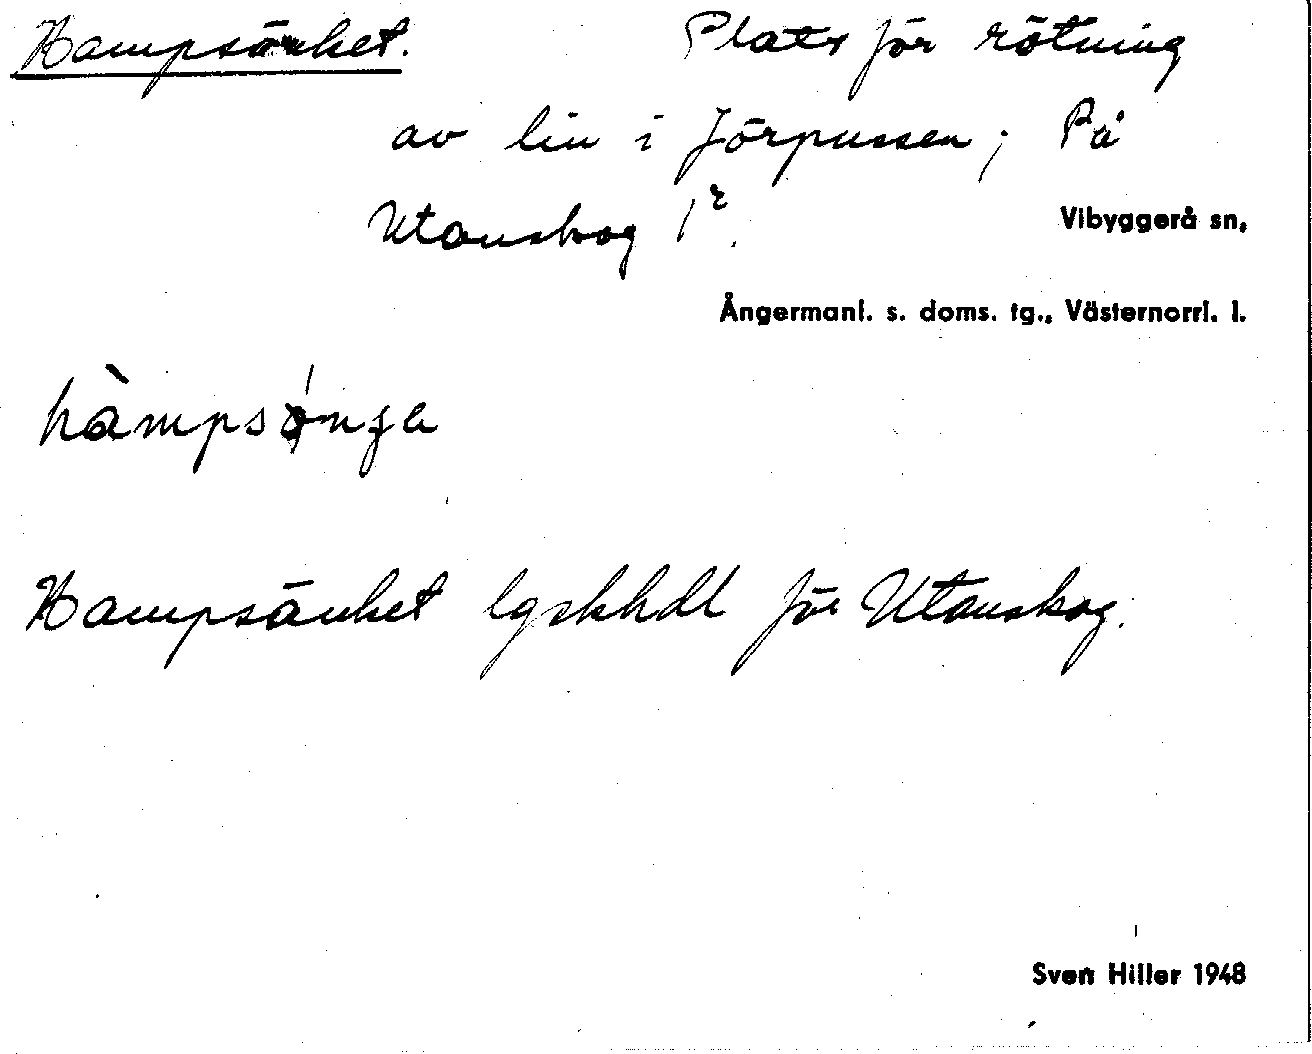 Hampsänket. Plats för rötning
av lin i Jörpussen; På
Utanskog 1².
Vibyggerå sn,
Ångermanl. s. doms. tg., Västernorrl. l.
Hampsänket lgskhdl för Utanskog.
Sven Hiller 1948